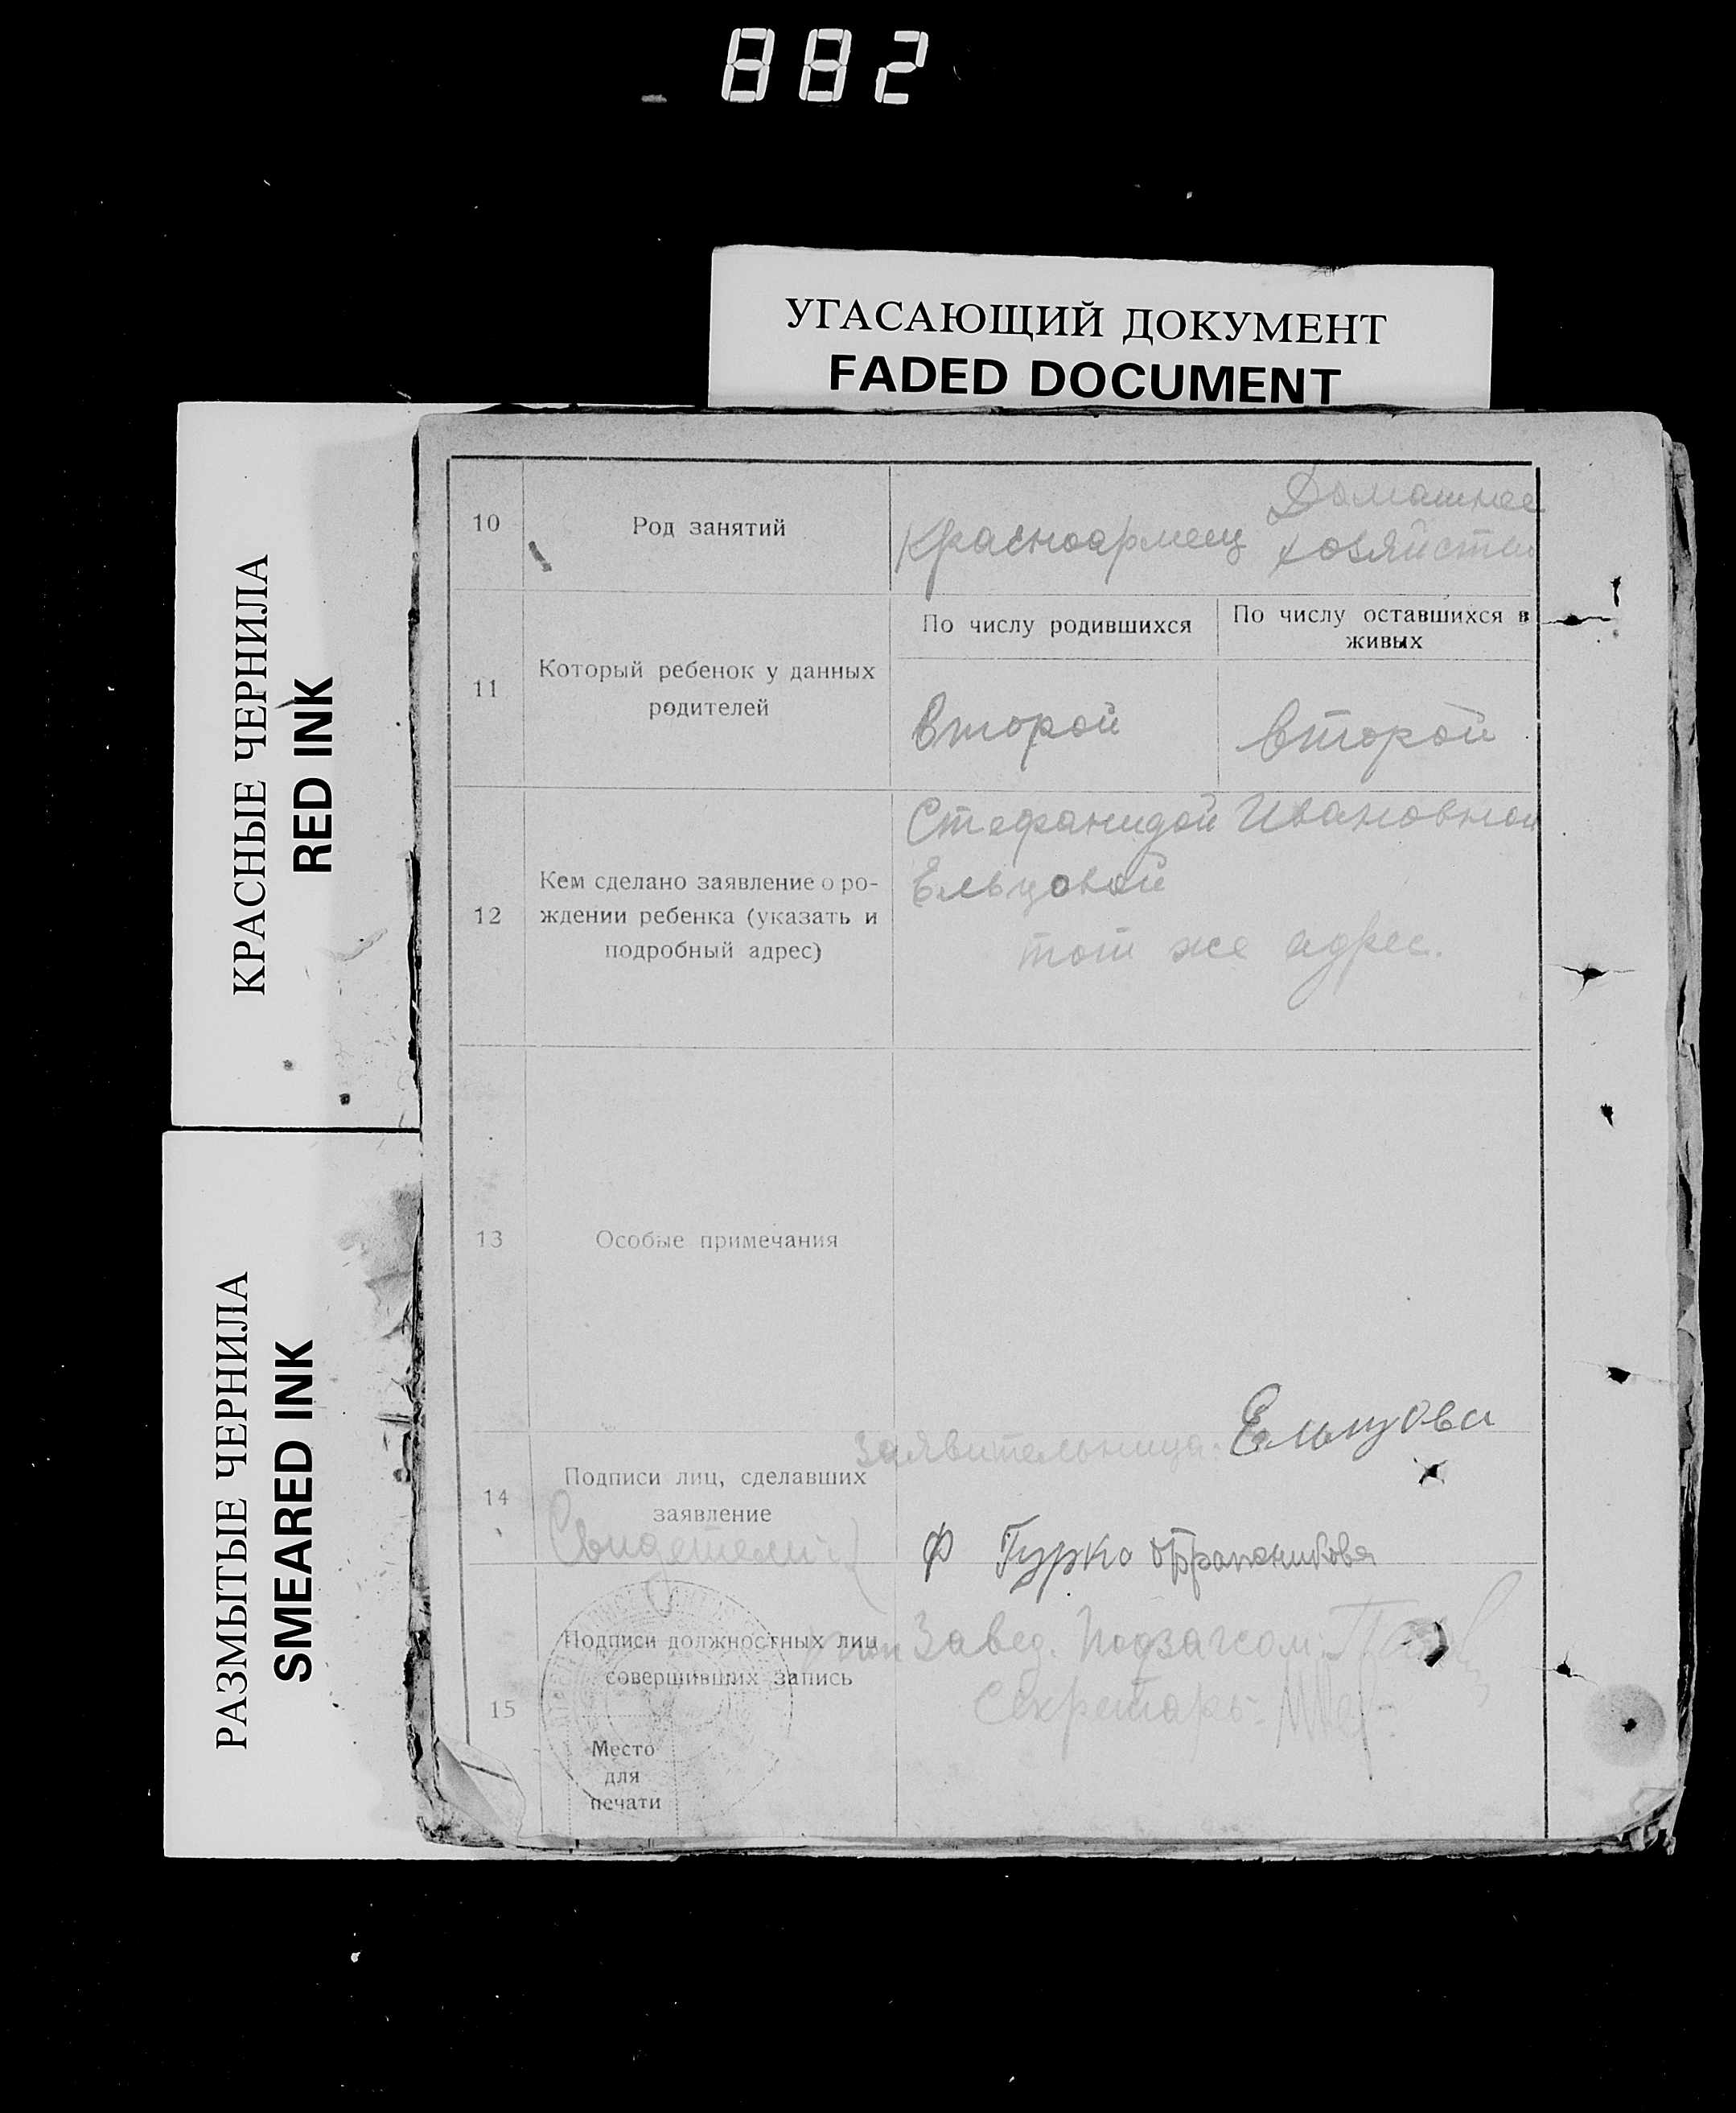 882
УГАСАЮЩИЙ ДОКУМЕНТ
FADED DOCUMENT
КРАСНЫЕ ЧЕРНИЛА
RED INK
РАЗМЫТЫЕ ЧЕРНИЛА
SMEARED INK
10
Род занятий
Красноармеец
Домашнее
хозяйство
11
Который ребенок у данных
родителей
По числу родившихся
По числу оставшихся в
живых
Второй
второй
12
Кем сделано заявление о ро-
ждении ребенка (указать и
подробный адрес)
Стефанидой Ивановной
Ельцовой
тот же адрес.
13
Особые примечания
14
Подписи лиц, сделавших
заявление
Заявительница: Ельцова
Свидетели:
Ф Гурко
15
Подписи должностных лиц
совершивших запись
Место
для
печати
Завед. Подзагсом:
Секретарь-